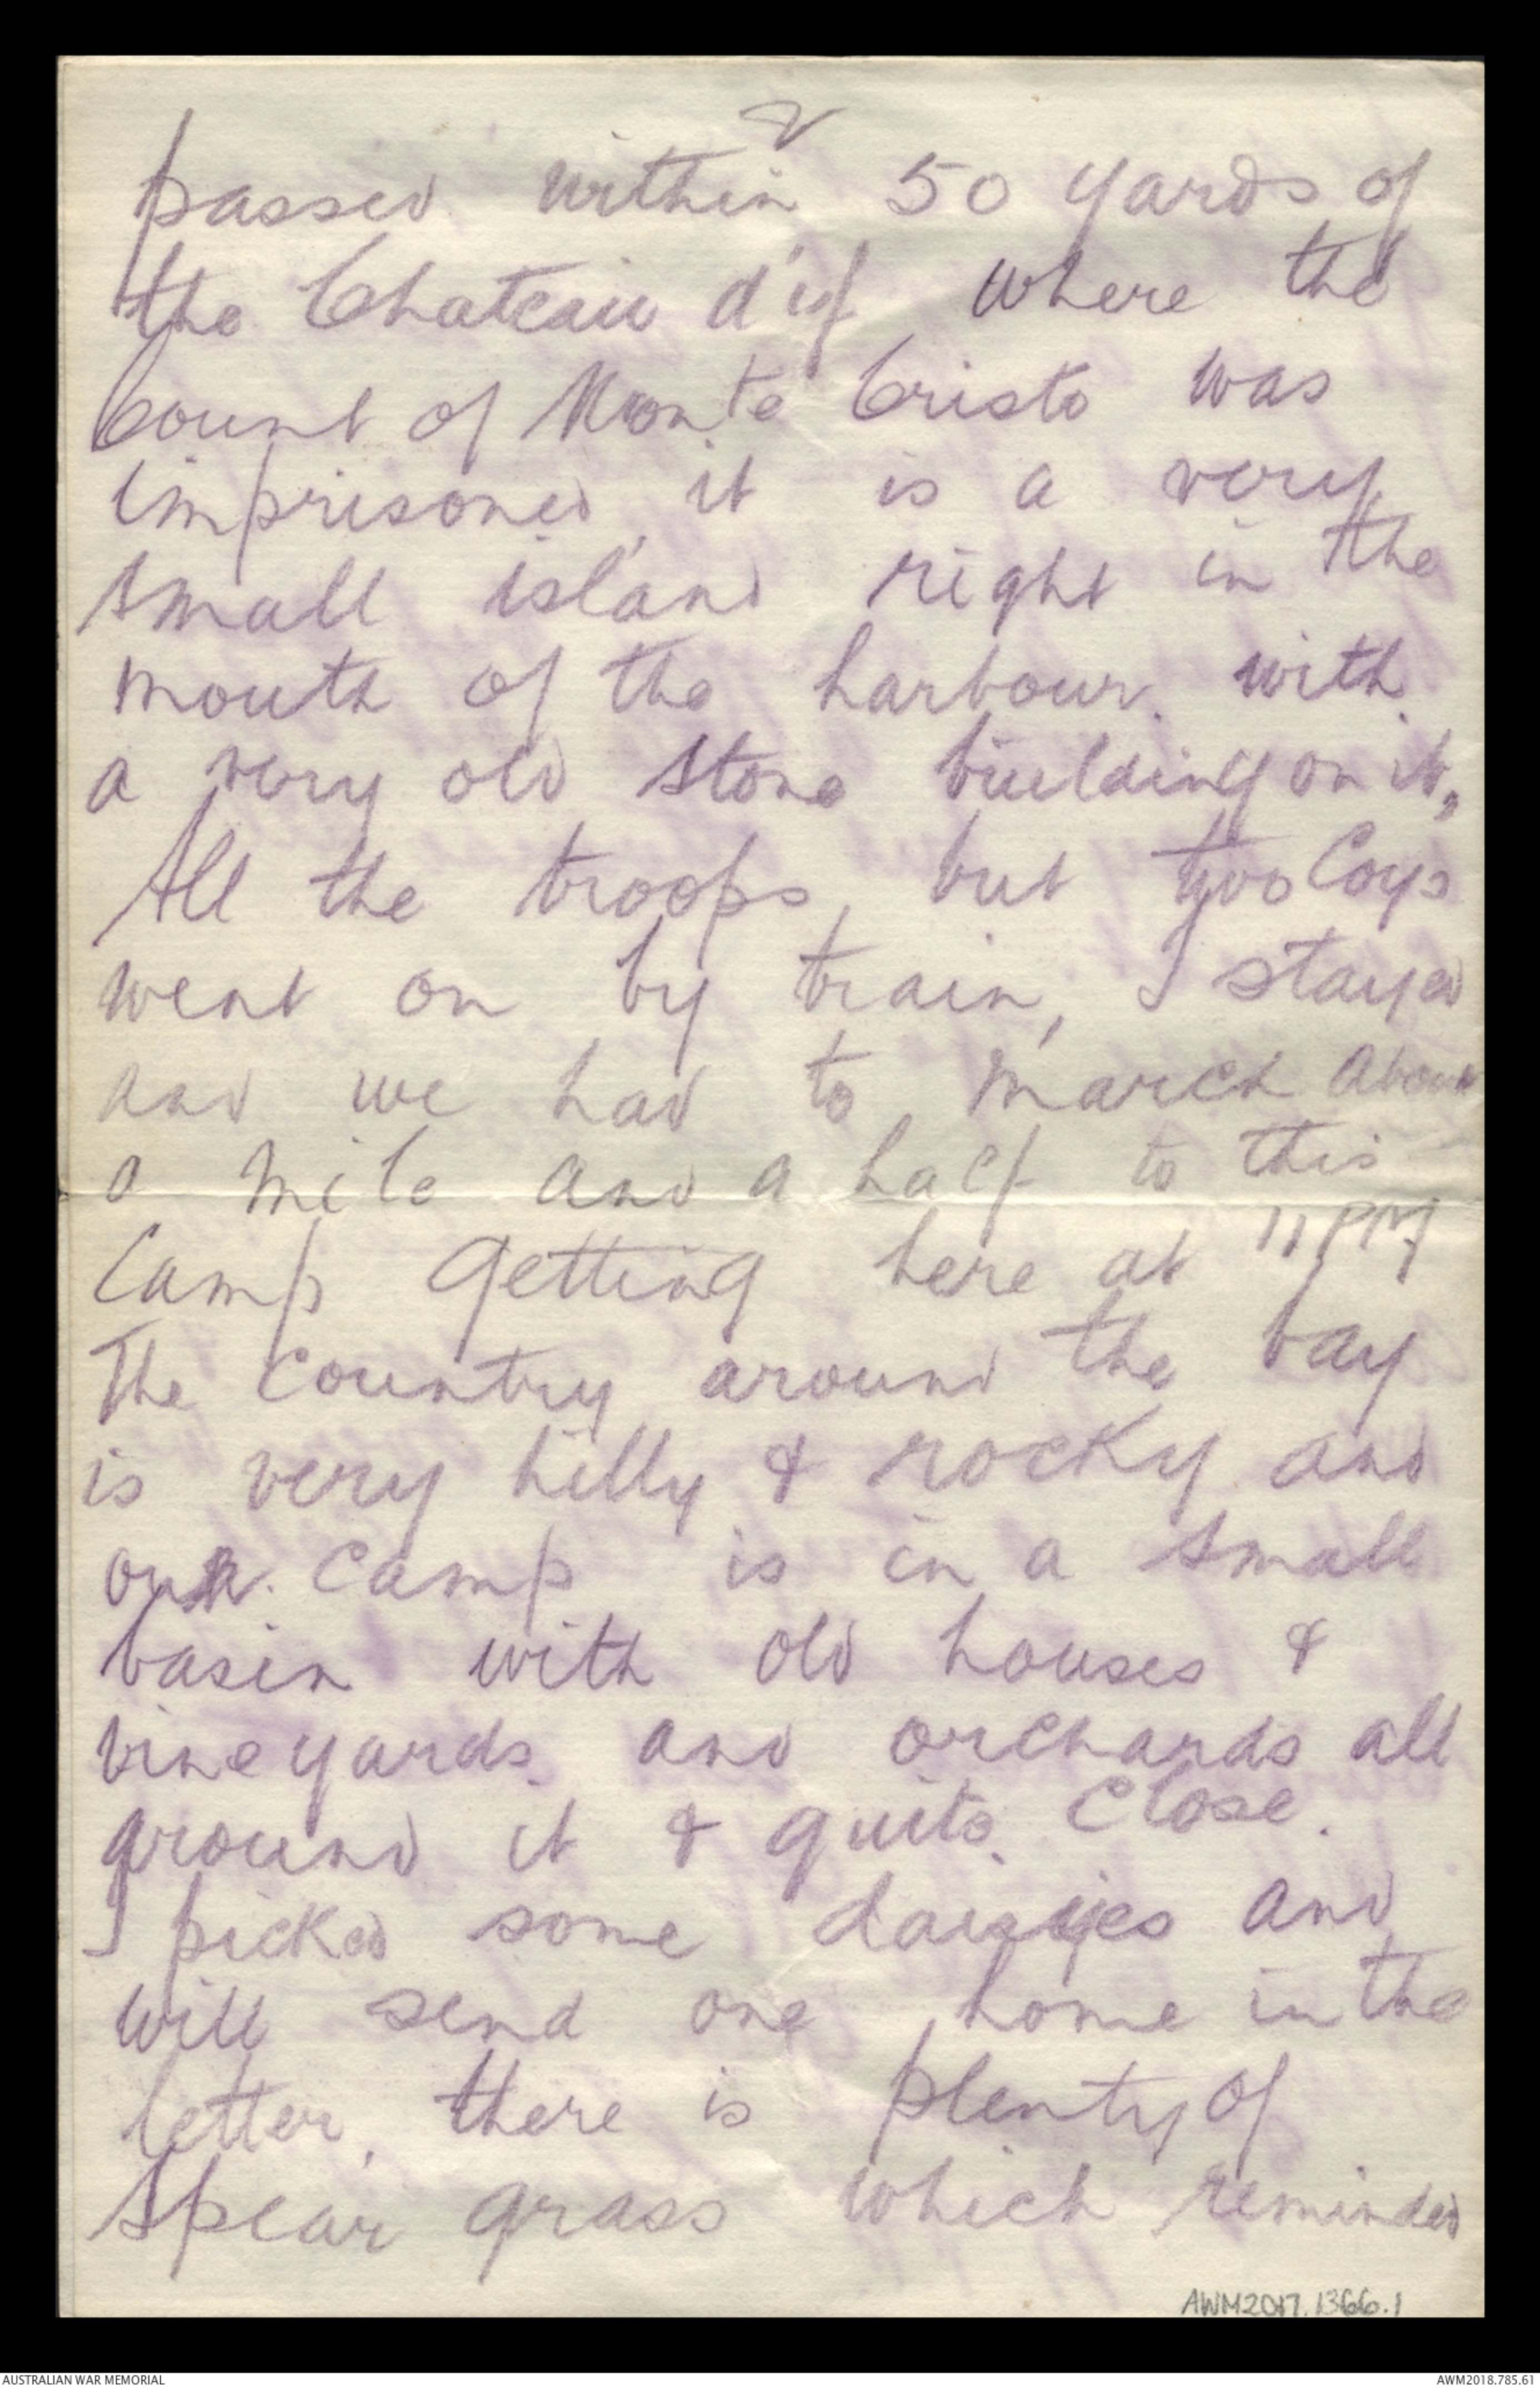 2
passed within 50 yards of
the Chateau d'if where the
Count of Monte Cristo was
imprisoned, it is a very
small island right in the
mouth of the harbour. with
a very old stone building on it,
All the troops, but two Coys
went on by train, I stayed
and we had to march about
a mile and a half to this
Camp getting here at 11 PM
The country around the bay
is very hilly & rocky and
our. camp is in a small
basin with old houses &
vineyards. and orchards all
around it & quite. close.
I picked some daisyies and
will send one home in the
letter, there is plenty of
spear grass which reminded
AWM2017.1366.1
AUSTRALIAN WAR MEMORIAL
AWM2018.785.61